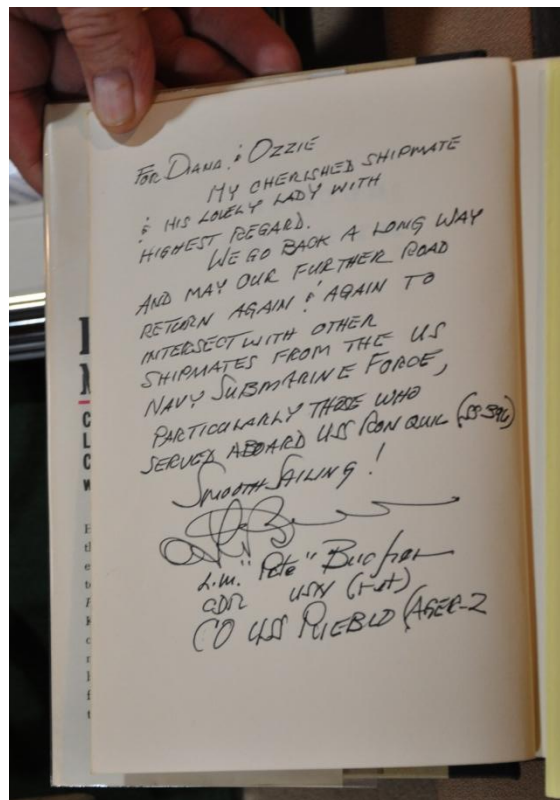 For Diana & Ozzie
My cherished shipmate
& his lovely lady with
highest regard.
We go back a long way
and may our further road
return again & again to
intersect with other
shipmates from the US
Navy Submarine Force,
particularly those who
served aboard USS Ronquil (SS-396)
Smooth Sailing!
L.M. "Pete" Bucher
CDR USN (Ret)
CO USS Pueblo (AGER-2